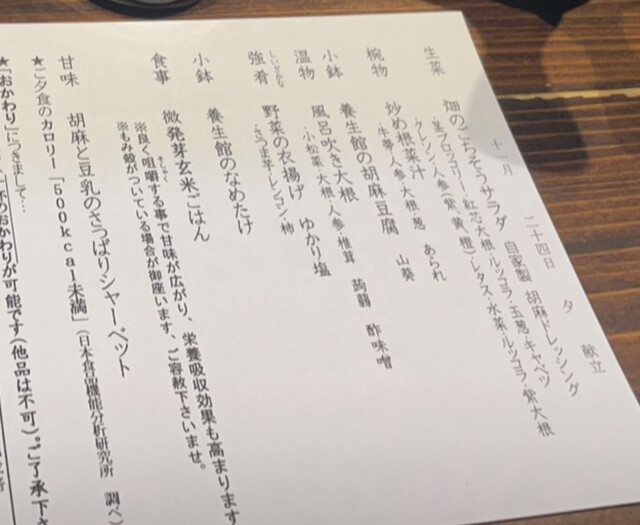 十一月 二十四日 夕 献立
生菜 畑のごちそうサラダ 自家製 胡麻ドレッシング
・茎ブロッコリー・紅芯大根・ルッコラ・玉葱・キャベツ
・クレソン・人参(紫、黄、橙)・レタス・水菜・ルッコラ・紫大根
椀物 炒め根菜汁 あられ
・牛蒡・人参・大根・葱
小鉢 養生館の胡麻豆腐 山葵
温物 風呂吹き大根 蒟蒻 酢味噌
・小松菜・大根・人参・椎茸
しいざかな
強肴 野菜の衣揚げ ゆかり塩
・さつま芋・レンコン・柿
小鉢 養生館のなめたけ
食事 微発芽玄米ごはん
そしゃく
※良く咀嚼する事で甘味が広がり、栄養吸収効果も高まります
※もみ殻がついている場合が御座います、ご容赦下さいませ。
甘味 胡麻と豆乳のさっぱりシャーベット
★ご夕食のカロリー「500kcal未満」(日本食品機能分析研究所 調べ)
★「おかわり」につきまして…
のおかわりが可能です(他品は不可)。ご了承下さ